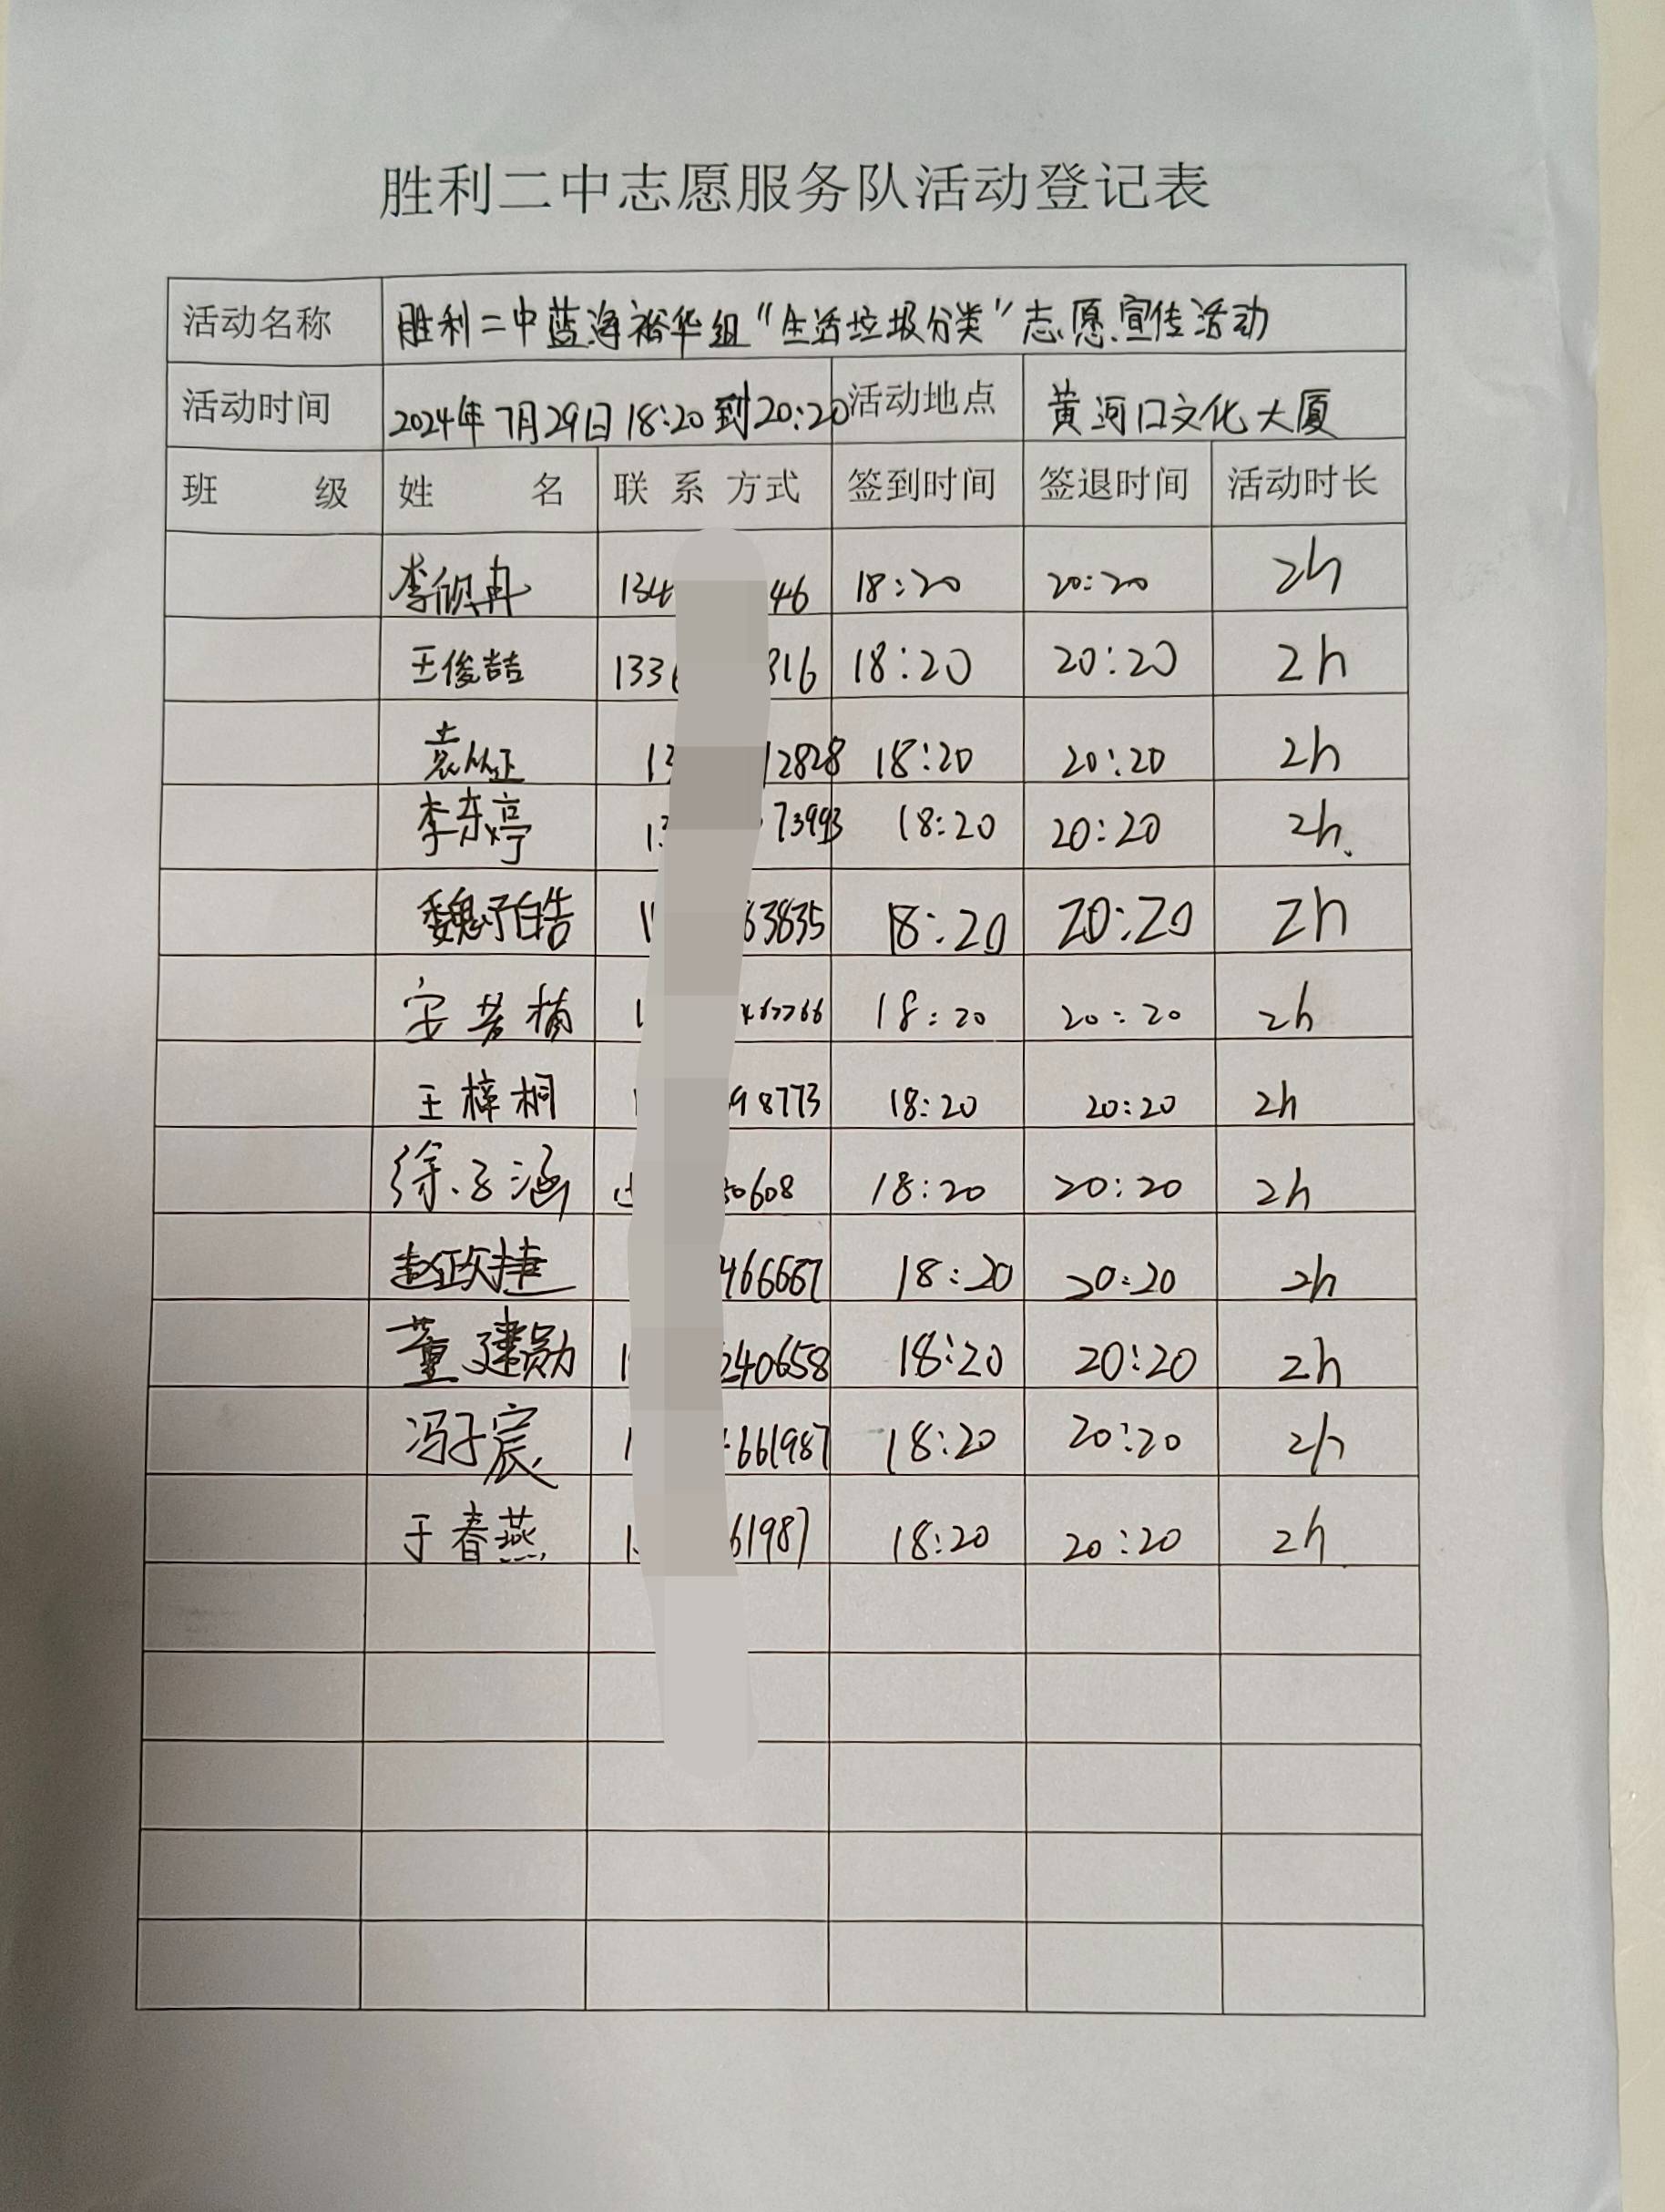 胜利二中志愿服务队活动登记表
活动名称 胜利二中蓝海裕华组“生活垃圾分类”志愿宣传活动
活动时间 2024年7月29日18:20到20:20 活动地点 黄河口文化大厦
班 级 姓 名 联系方式 签到时间 签退时间 活动时长
李欣冉 134 46 18:20 20:20 2h
王俊喆 133 316 18:20 20:20 2h
袁从正 13 12828 18:20 20:20 2h
李东婷 13 73993 18:20 20:20 2h
魏子皓 1 63835 18:20 20:20 2h
安芳楠 1 18:20 20:20 2h
王梓桐 1 98773 18:20 20:20 2h
徐子涵 0608 18:20 20:20 2h
赵政捷 466667 18:20 20:20 2h
董建勋 1 240658 18:20 20:20 2h
冯子宸 1 661987 18:20 20:20 2h
于春燕 1 61987 18:20 20:20 2h